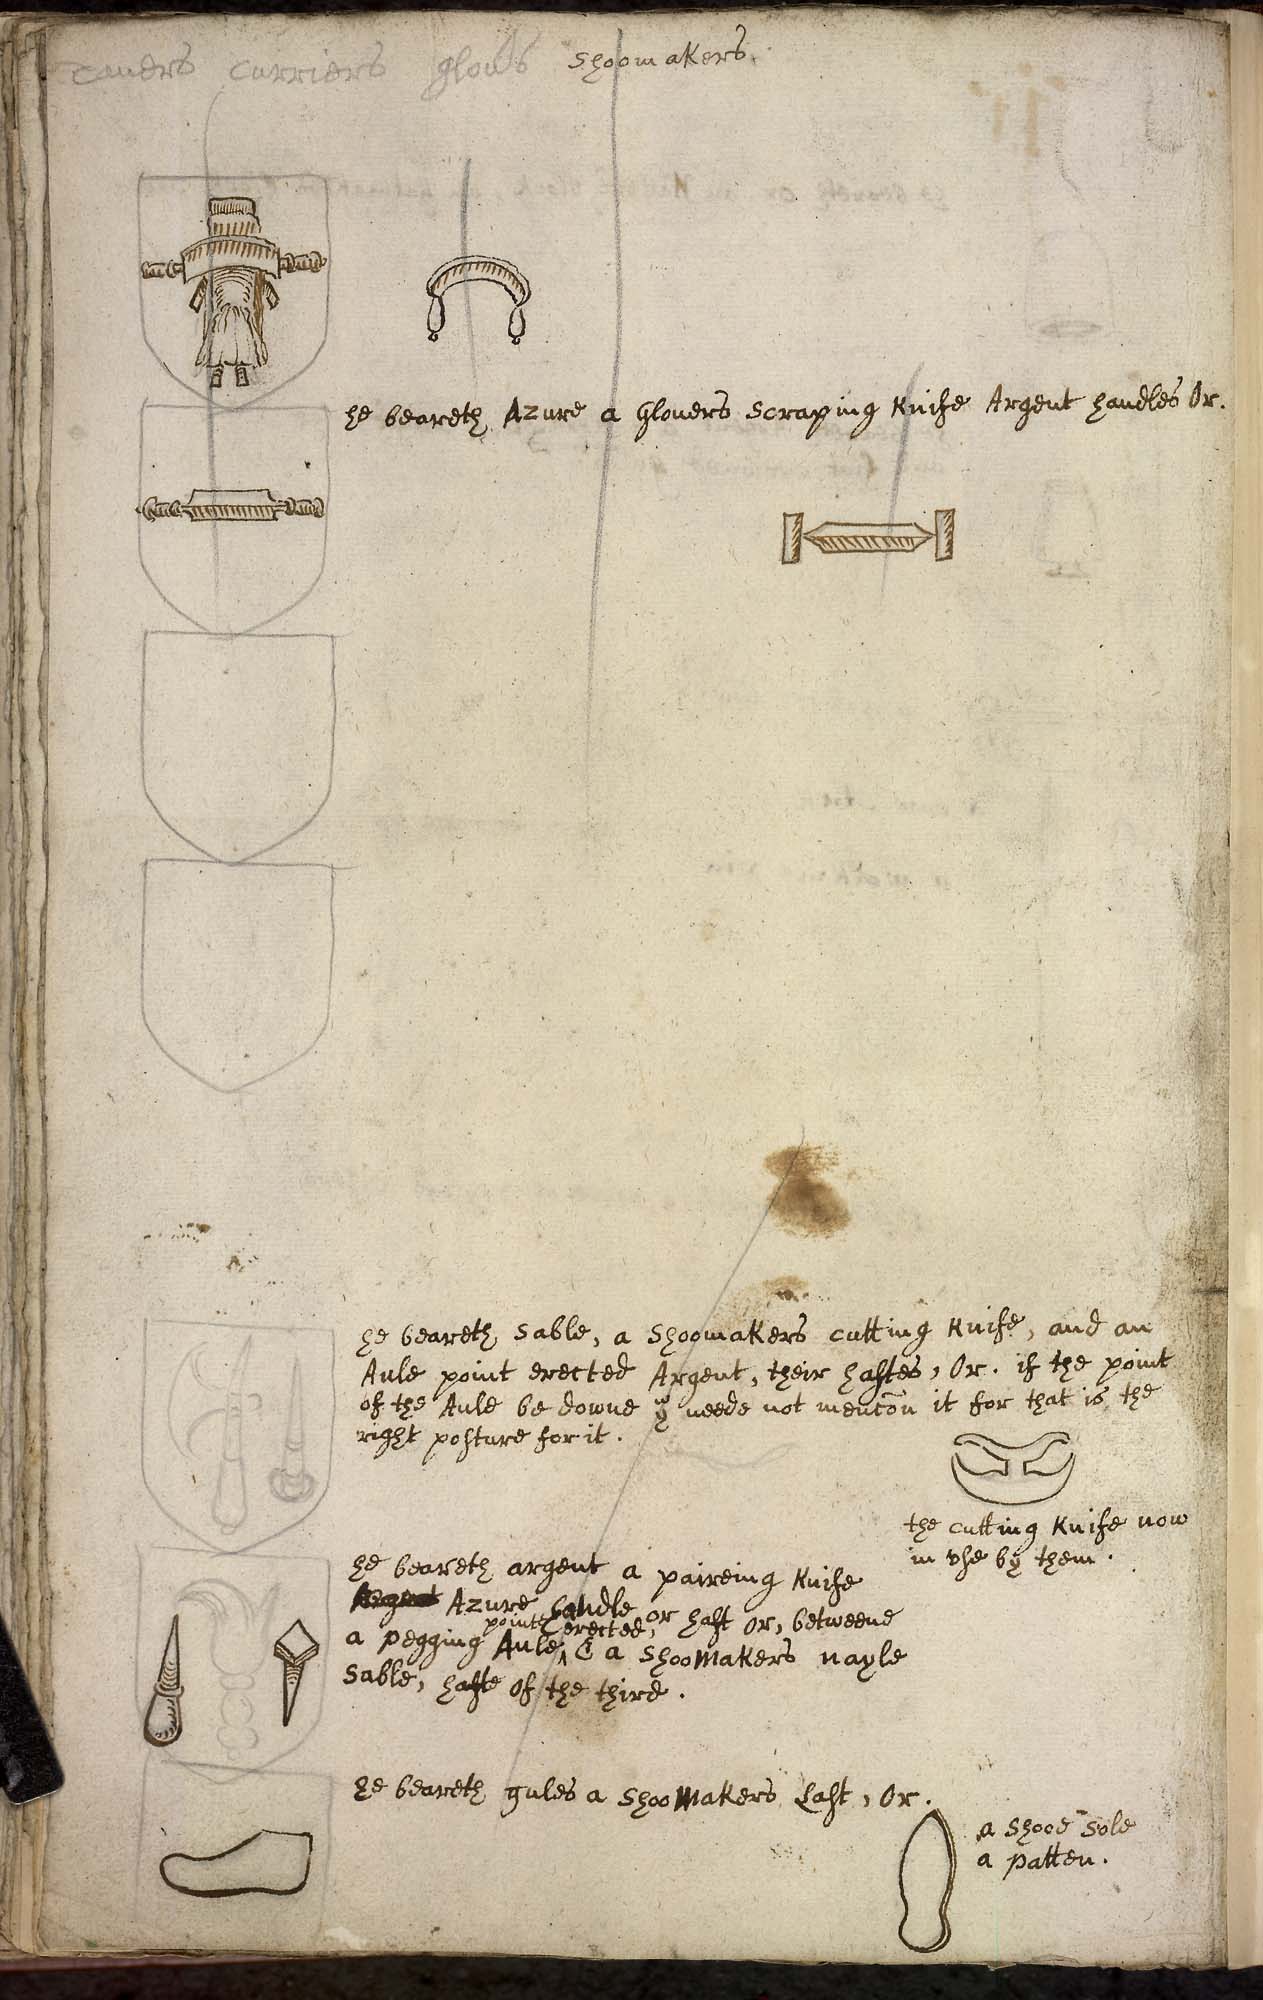 caners curriers glovs shoomakers.
he beareth Azure a Glouers scraping Knife Argent handles Or.
he beareth sable, a shoomakers cutting Knife, and an
Aule point erected Argent, their haftes, Or. if the point
of the Aule be downe yu neede not mencōn it for that is the
right posture for it.
the cutting Knife now
in vse by them.
he beareth argent a paireing Knife
Azure handle or haft or, betweene
a pegging Aule, points erected, & a shooMakers nayle
sable, hafte of the third.
he beareth gules a shooMakers Last, Or.
a shooe sole
a patten.